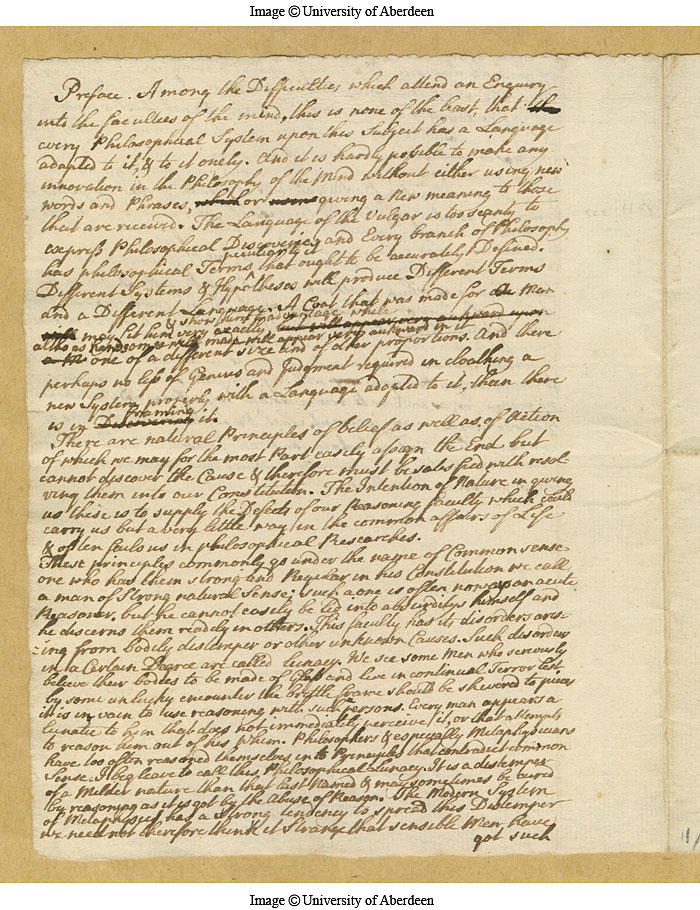 Image © University of Aberdeen
Preface. Among the Difficulties which attend an Enquiry
into the faculties of the mind, this is none of the least, that the
every Philosophical System upon this Subject has a Language
adapted to it, & to it onely. And it is hardly possible to make any
innovation in the Philosophy of the Mind without either using new
words and Phrases, which or some giving a New meaning to those
that are received. The Language of the Vulgar is too scanty to
express Philosophical Discoveries and Every branch of Philosophy
peculiarly it
has philosophical Terms that ought to be accurately Defined.
Different Systems & Hypotheses will produce Different Terms
and a Different Language. A Coat that was made for a Man
& show him to advantage while
may fit him very exactly, but will appear very aukward upon
altho as handsom & well made will appear very aukward in it
one of a different size and of other proportions. And there
perhaps no less of Genius and Judgment required in cloathing a
new System properly with a Language adapted to it, than there
framing
is in Discovering it.
There are natural Principles of belief as well as of Action
of which we may for the most Part easily assign the End but
cannot discover the Cause & therefore must be satisfied with resol-
ving them into our Constitution. The Intention of Nature in giving
us these is to supply the Defects of our Reasoning faculty which could
carry us but a very little way in the common affairs of Life
& often fails us in philosophical Researches.
These principles commonly go under the name of Common sense
one who has them strong and Regular in his Constitution we call
a man of Strong natural Sense; such a one is often no acute
Reasoner, but he cannot easily be led into absurditys himself and
he discerns them readily in others. This faculty has its disorders aris-
ing from bodily distemper or other unknown Causes. Such disorders
in a Certain Degree are called lunacy. We see some Men who seriously
believe their bodies to be made of Glass and live in continual Terror lest
by some unlucky encounter the brittle frame should be shevered to pieces
it is in vain to use reasoning with such Persons. Every man appears a
lunatic to him that does not immediately perceive it, or that attempts
to reason him out of his whim. Philosophers & especially Metaphysicians
have too often reasoned themselves into Principles that contradict common
Sense. I beg leave to call this Philosophical Lunacy. It is a distemper
of a Milder nature than that last Named & may sometimes be cured
by reasoning as it is got by the Abuse of Reason. The Modern System
of Metaphysics has a strong tendency to spread this Distemper
we need not therefore think it Strange that sensible Men have
got such
Image © University of Aberdeen